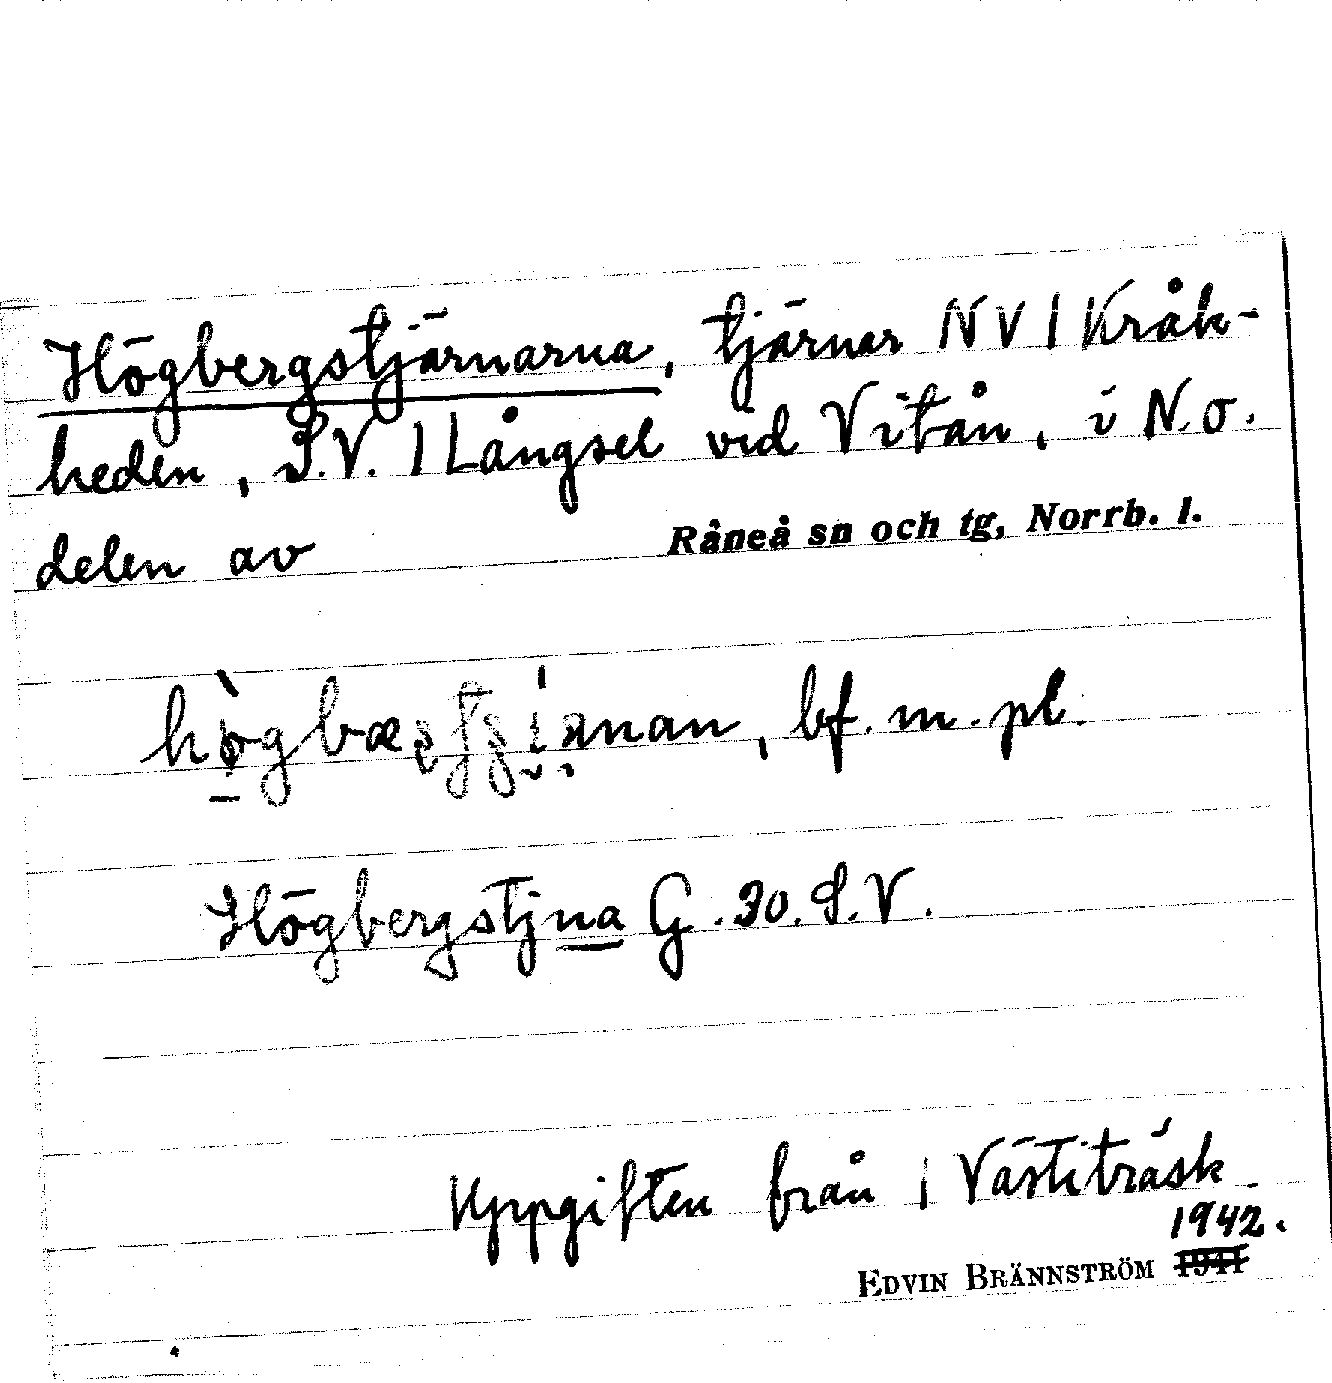 Högbergstjärnarna, tjärnar NV / Kråk-
heden, S.V. / Långsel vid Vitån, i N.O.
delen av Råneå sn och tg, Norrb. l.
bf. m. pl.
Högbergstjna G. 30. S.V.
Uppgiften från / Västiträsk
1942.
EDVIN BRÄNNSTRÖM 1941